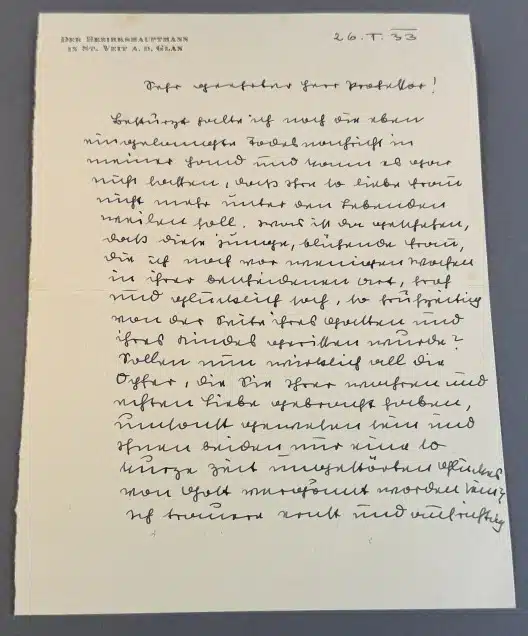 DER BEZIRKSHAUPTMANN
IN ST. VEIT A. D. GLAN
26. I. 33
Sehr geehrter Herr Professor!
Bestürzt halte ich noch die eben
eingelangte Todesnachricht in
meiner Hand und kann es gar
nicht fassen, dass Ihre so liebe Frau
nicht mehr unter den Lebenden
weilen soll. Was ist da geschehen,
dass diese junge, blühende Frau,
die ich noch vor wenigen Wochen
in ihrer bescheidenen Art, froh
und glücklich sah, so frühzeitig
von der Seite ihres Gatten und
ihres Kindes gerissen wurde?
Sollen nun wirklich all die
Opfer, die Sie Ihrer wahren und
echten Liebe gebracht haben,
umsonst gewesen sein und
Ihnen beiden nur eine so
kurze Zeit ungestörten Glückes
von Gott vergönnt worden sein?
Ich trauere ernst und aufrichtig